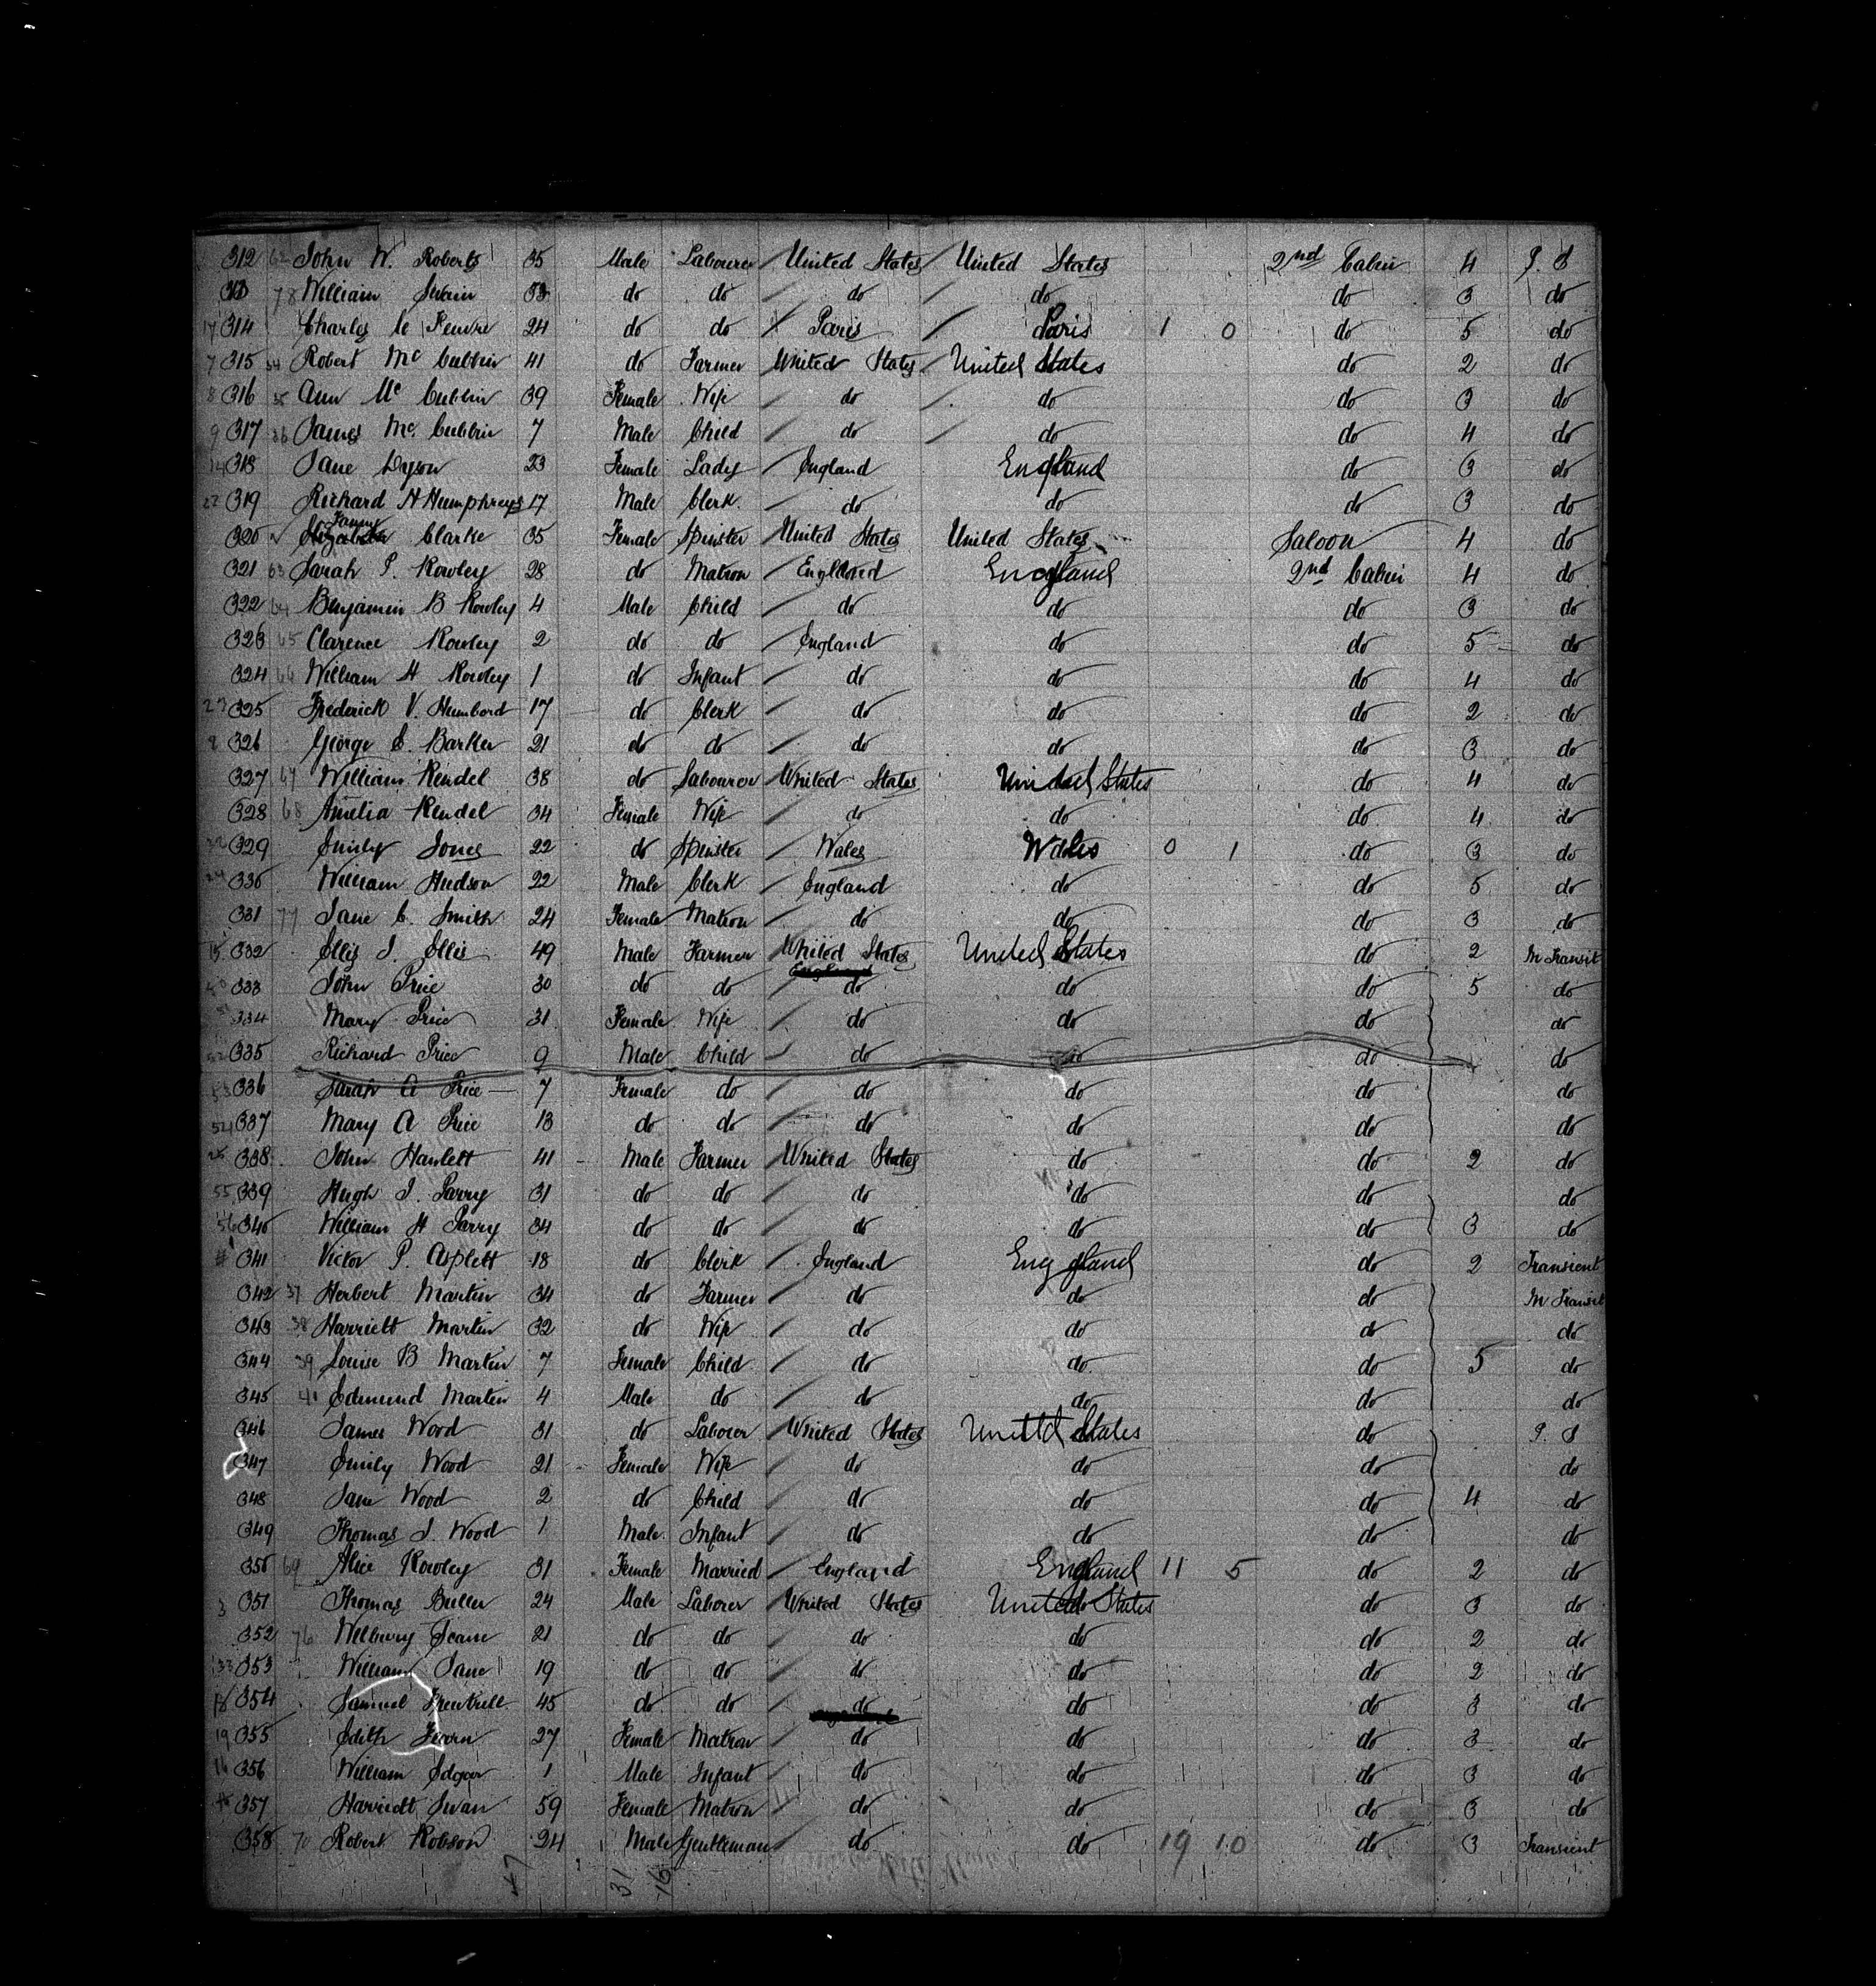 312 62 John W. Roberts 35 Male Labourer United States United States 2nd Cabin 4 P. S
313 78 William Swain 53 do do do do do 3 do
17 314 Charles le Feuvre 24 do do Paris Paris 1 0 do 5 do
7 315 34 Robert Mc Cubbin 41 do Farmer United States United States do 2 do
8 316 35 Ann Mc Cubbin 39 Female Wife do do do 3 do
9 317 36 James Mc Cubbin 7 Male Child do do do 4 do
14 318 Jane Dyson 23 Female Lady England England do 3 do
22 319 Richard H Humphreys 17 Male Clerk do do do 3 do
320 Fanny Clarke 35 Female Spinster United States United States Saloon 4 do
321 63 Sarah P. Rowley 28 do Matron England England 2nd Cabin 4 do
322 64 Benjamin B Rowley 4 Male Child do do do 3 do
323 65 Clarence Rowley 2 do do England do do 5 do
324 66 William H Rowley 1 do Infant do do do 4 do
23 325 Frederick V. Humbord 17 do Clerk do do do 2 do
8 326 George S. Barker 21 do do do do do 3 do
327 67 William Rendel 38 do Labourer United States United States do 4 do
328 68 Amelia Rendel 34 Female Wife do do do 4 do
329 Emily Jones 22 do Spinster Wales Wales 0 1 do 3 do
24 330 William Hudson 22 Male Clerk England do do 5 do
331 77 Jane C. Smith 24 Female Matron do do do 3 do
15 332 Ellis J. Ellis 49 Male Farmer United States United States do 2 In Transit
333 John Price 30 do do do do do 5 do
334 Mary Price 31 Female Wife do do do do
335 Richard Price 9 Male Child do do do do
53 336 Sarah A Price 7 Female do do do do do
54 337 Mary A Price 13 do do do do do do
338 John Hanlett 41 Male Farmer United States do do 2 do
55 339 Hugh J. Parry 31 do do do do do do
56 340 William H Parry 34 do do do do do 3 do
341 Victor P. Asplett 18 do Clerk England England do 2 Transient
342 37 Herbert Martin 34 do Farmer do do do In Transit
343 38 Harriett Martin 32 do Wife do do do do
344 39 Louise B Martin 7 Female Child do do do 5 do
345 40 Edmund Martin 4 Male do do do do do
346 James Wood 31 do Laborer United States United States do P. S
347 Emily Wood 21 Female Wife do do do do
348 Jane Wood 2 do Child do do do 4 do
349 Thomas J. Wood 1 Male Infant do do do do
350 69 Alice Rowley 31 Female Married England England 11 5 do 2 do
3 351 Thomas Buller 24 Male Laborer United States United States do 3 do
352 76 21 do do do do do 2 do
33 353 William Jane 19 do do do do do 2 do
354 Samuel 45 do do do do do 3 do
19 355 Edith Fearn 27 Female Matron do do do 3 do
16 356 William Edgar 1 Male Infant do do do 3 do
357 Harriett Swan 59 Female Matron do do do 3 do
358 70 Robert Robson 24 Male Gentleman do do 19 10 do 3 Transient
47 31 16